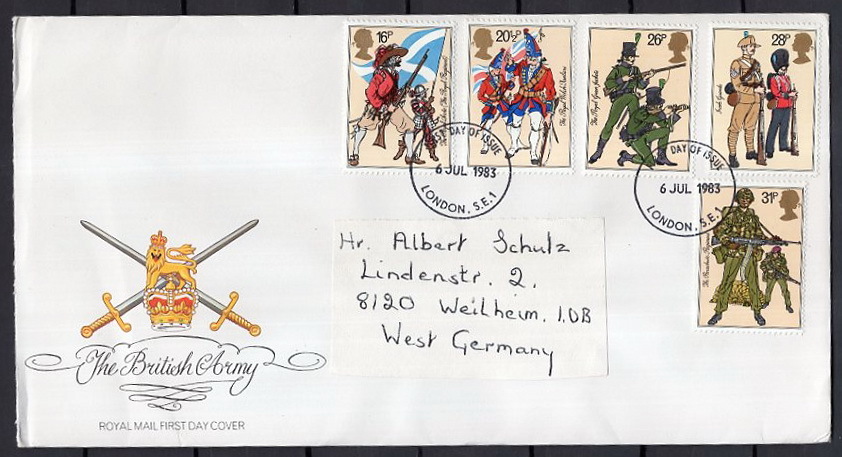 16P
20½P
26P
28P
The Royal Green Jackets
Irish Guards
31P
FIRST DAY OF ISSUE
6 JUL 1983
LONDON, S.E.1
DAY OF ISSUE
6 JUL 1983
LONDON, S.E.1
Hr. Albert Schulz
Lindenstr. 2.
8120 Weilheim. I.OB
West Germany
The British Army
ROYAL MAIL FIRST DAY COVER